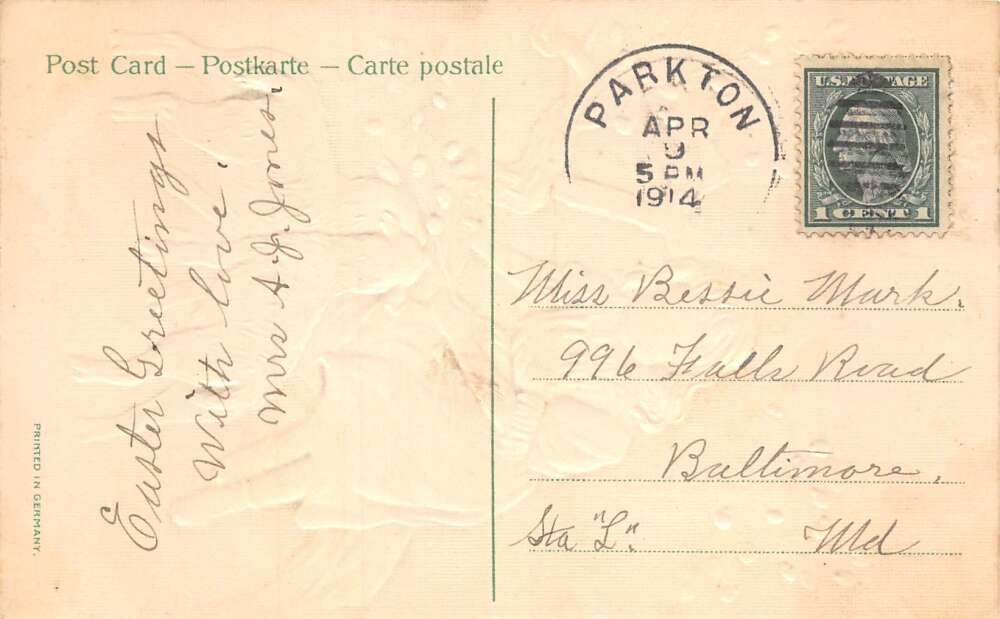 Post Card – Postkarte – Carte postale
PARKTON
APR
9
5 PM
1914
U.S. POSTAGE
1 CENT 1
Easter Greetings
With love.
Mrs A. J. Jones.
Miss Bessie Mark.
996 Falls Road
Baltimore.
Sta "L".    Md
PRINTED IN GERMANY.